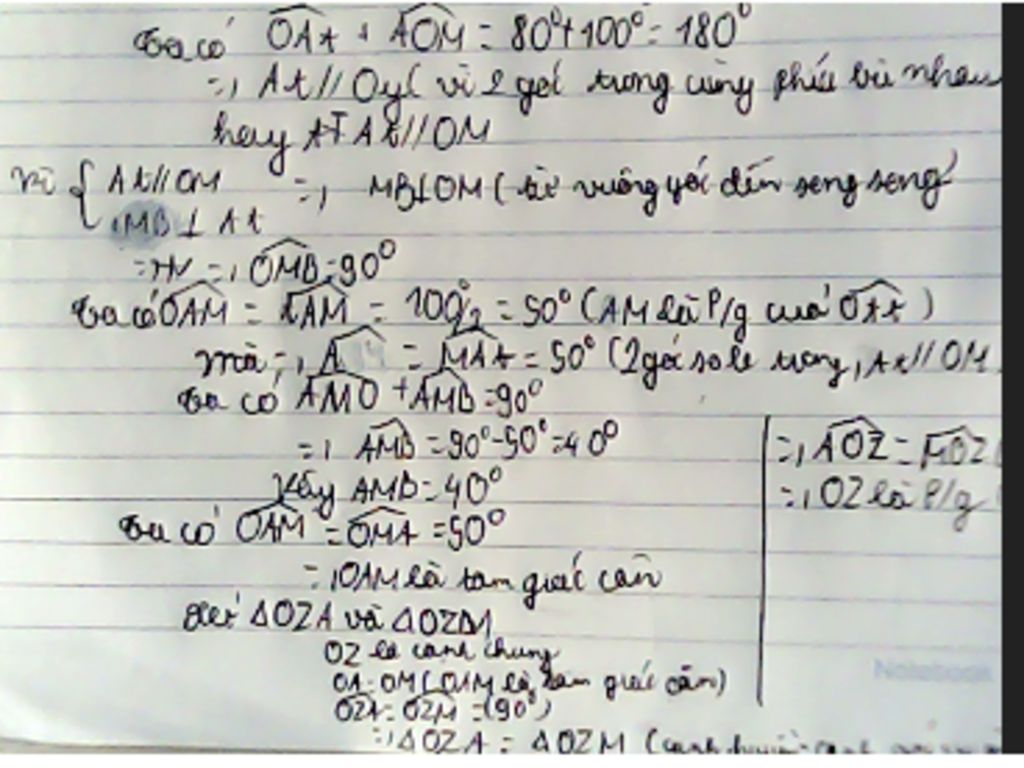 Ta có OAt + AOM = 80° + 100° = 180°
=> At // Oy ( vì 2 góc trong cùng phía bù nhau
hay At // OM
Vì { At // OM => MB ⊥ OM ( từ vuông góc đến song song
MB ⊥ At
=> OMB = 90°
Ta có OAM = tAM = 100°/2 = 50° ( AM là P/g của OAt )
mà => A = MAt = 50° ( 2 góc so le trong, At // OM
Ta có AMO + AMB = 90°
=> AMB = 90° - 50° = 40°
Vậy AMB = 40°
Ta có OAM = OMA = 50°
=> OAM là tam giác cân
Xét ΔOZA và ΔOZM
OZ là cạnh chung
OA = OM ( OAM là tam giác cân )
OZA = OZM = (90°)
=> ΔOZA = ΔOZM ( cạnh huyền - cạnh
=> AOZ = MOZ (
=> OZ là P/g
Notebook